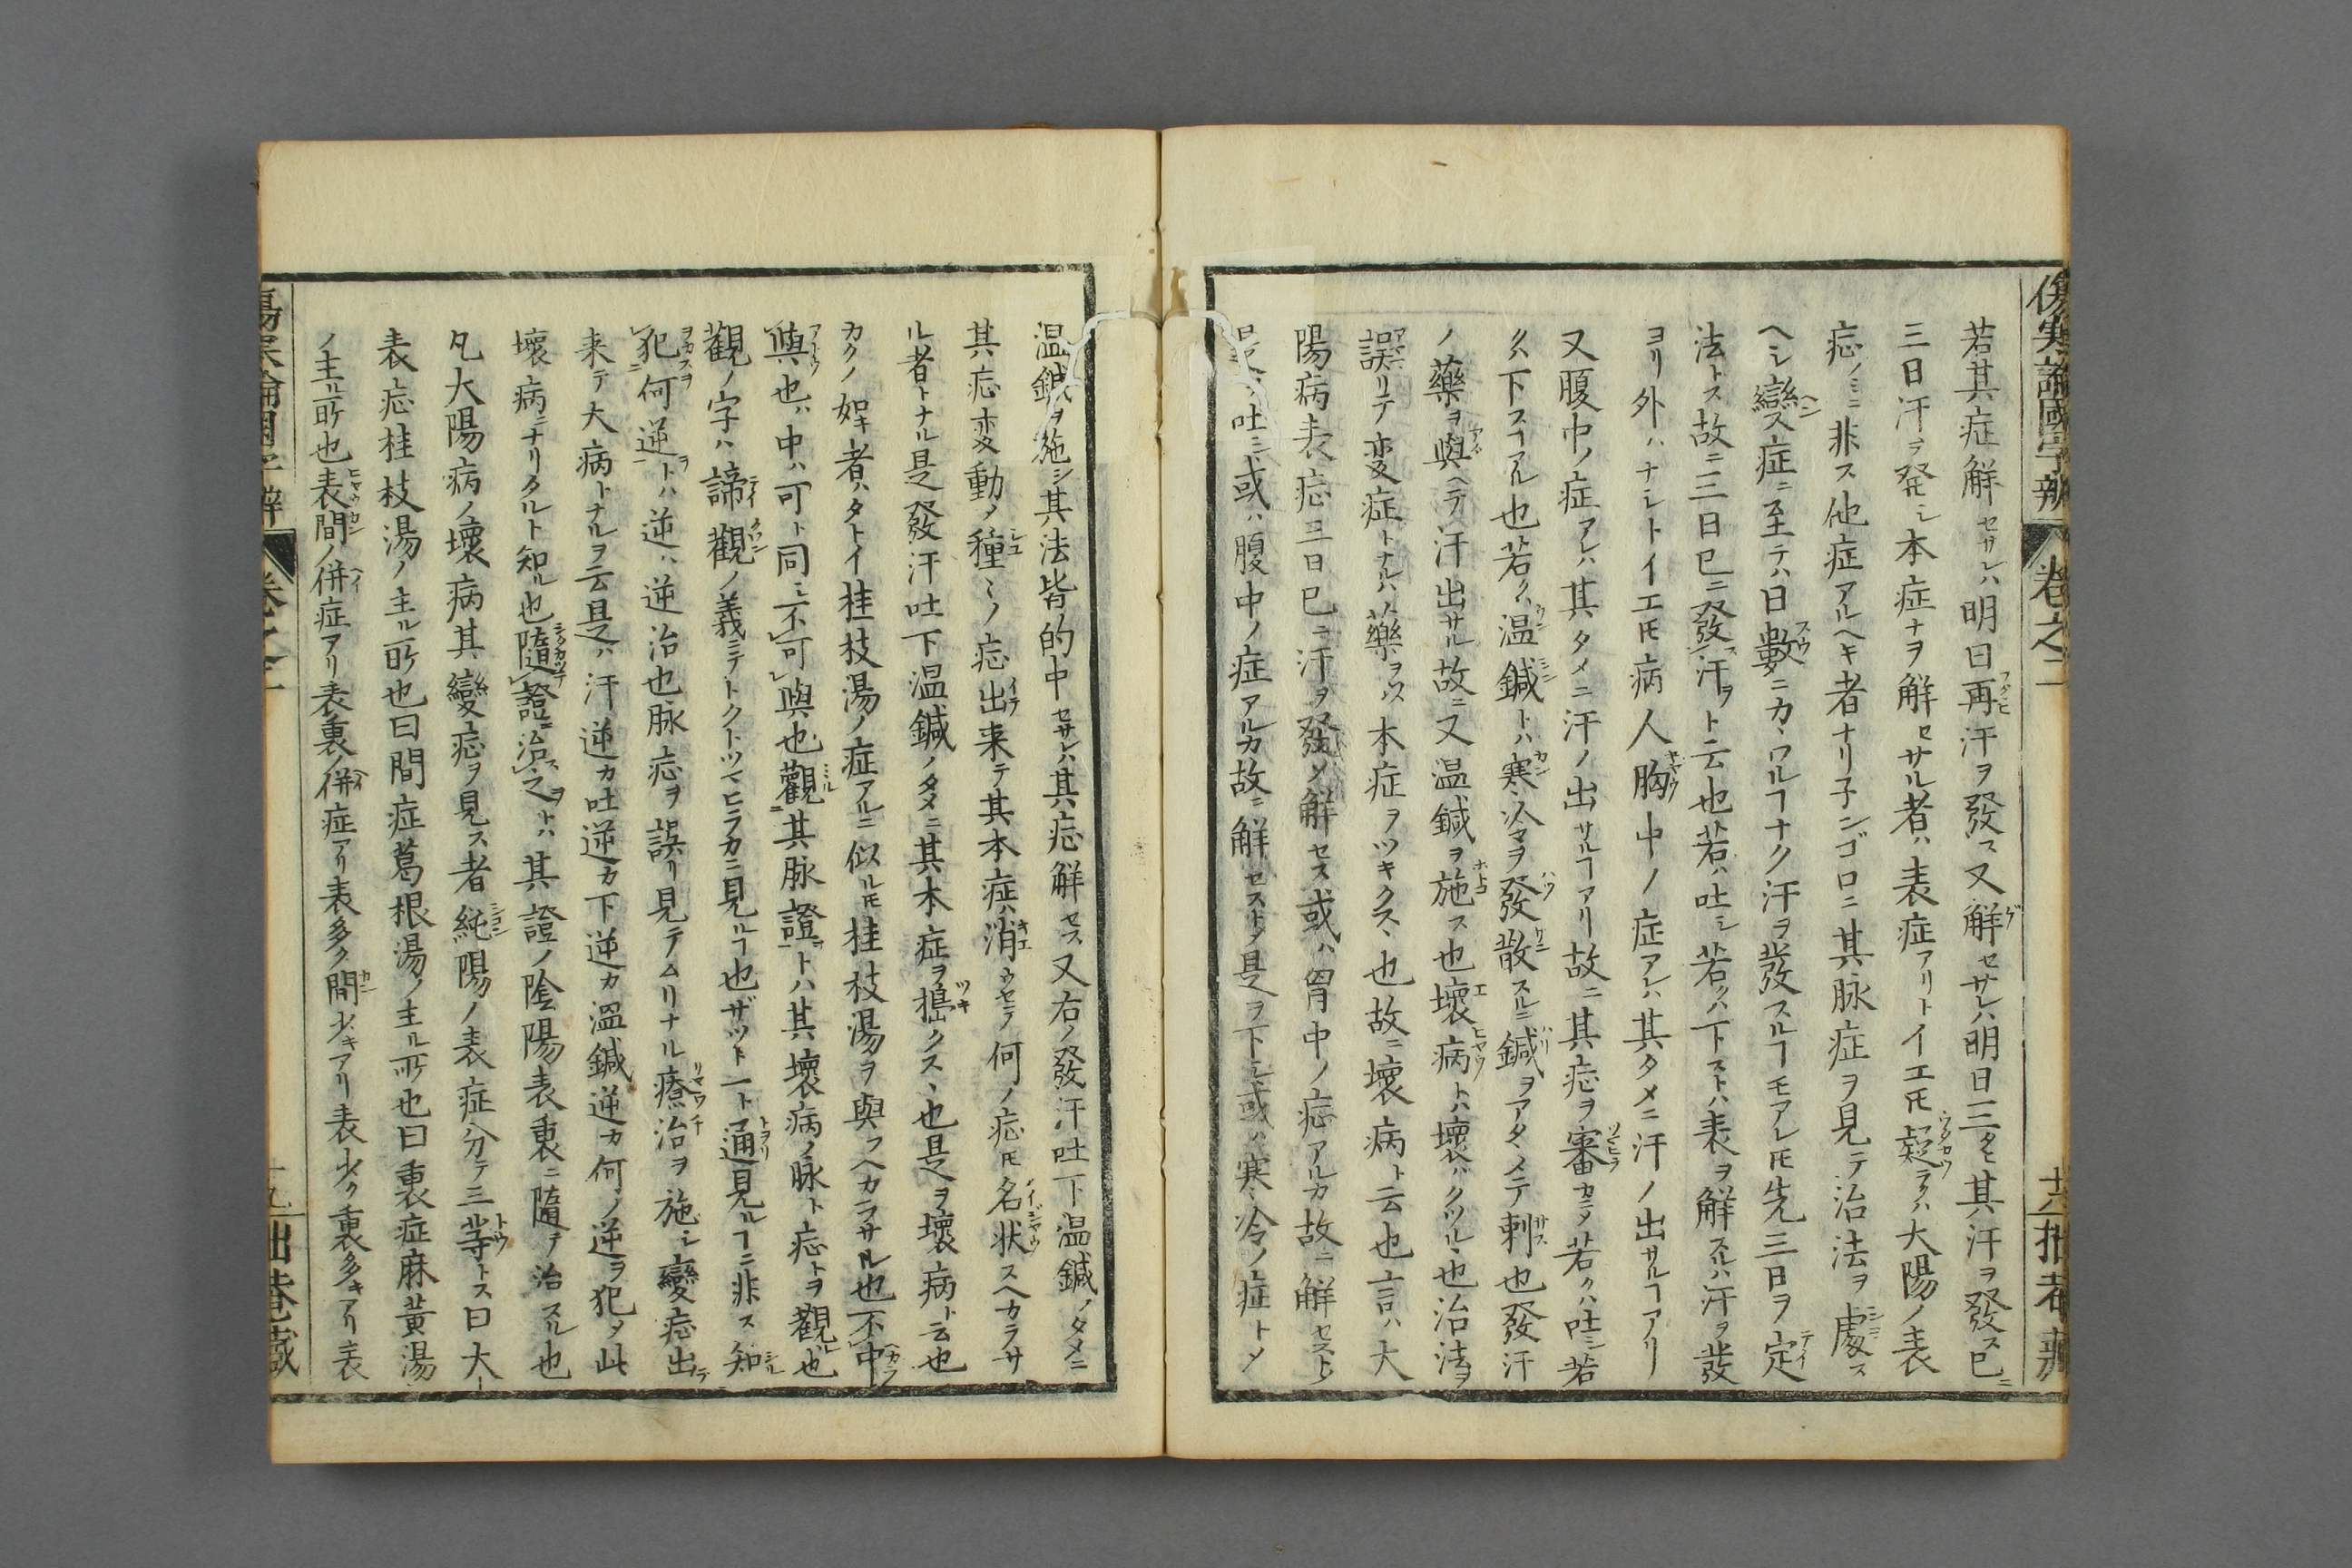 傷寒論國字辨 卷之二 十六
若其症解セサレハ明日再汗ヲ發ス又解セサレハ明日三タヒ其汗ヲ發ス已ニ
三日汗ヲ発シ本症ナヲ解セサル者ハ表症アリトイエ𪜈疑ラクハ大陽ノ表
症ノミニ非ス他症アルヘキ者ナリ子ンゴロニ其脉症ヲ見テ治法ヲ處ス
ヘシ變ス症ニ至テハ日數ニカヽワルヿナク汗ヲ發スルヿモアレ𪜈先三日ヲ定
法トス故ニ三日已ニ發汗ヲト云也若ハ吐シ若クハ下ストハ表ヲ解スルハ汗ヲ發
ヨリ外ハナシトイエ𪜈病人胸中ノ症アレハ其タメニ汗ノ出サルヿアリ
又腹中ノ症アレハ其タメニ汗ノ出サルヿアリ故ニ其症ヲ審カニメ若クハ吐シ若
クハ下スヿアル也若クハ温鍼トハ寒冷ヲ發散スルニ鍼ヲアタヽメテ刺也發汗
ノ藥ヲ與ヘテ汗出サル故ニ又温鍼ヲ施ス也壞病トハ壞ハクツルヽ也治法ヲ
誤リテ変症トナルハ藥ヲ以本症ヲツキクスヽ也故ニ壞病ト云也言ハ大
陽病表症三日已ニ汗ヲ發メ解セス或ハ胃中ノ症アルカ故ニ解セストメ
是ヲ吐シ或ハ腹中ノ症アルカ故ニ解セストメ是ヲ下シ或ハ寒冷ノ症トメ
温鍼ヲ施シ其法皆的中セサレハ其症解セス又右ノ發汗吐下温鍼ノタメニ
其症変動メ種〻ノ症出来テ其本症ハ消ウセテ何ノ症𪜈名状スヘカラサ
ル者トナル是發汗吐下温鍼ノタメニ其本症ヲ搗クスヽ也是ヲ壞病ト云也
カクノ如キ者ハタトイ桂枝湯ノ症アルニ似ル𪜈桂枝湯ヲ與フヘカラサル也不中
與也ハ中ハ可ト同シ不可與也觀其脉證トハ其壞病ノ脉ト症トヲ觀也
觀ノ字ハ諦觀ノ義ニテトクトツマヒラカニ見ルヿ也ザット一ト通見ルヿニ非ス知
犯何逆トハ逆ハ逆治也脉症ヲ誤リ見テムリナル療治ヲ施シ變症出
来テ大病トナルヲ云是ハ汗逆カ吐逆カ下逆カ温鍼逆カ何ノ逆ヲ犯メ此
壞病ニナリタルト知ル也隨證治之トハ其證ノ陰陽表裏ニ隨テ治スル也
凡大陽病ノ壞病其變症ヲ見ス者純陽ノ表症分テ三等トス曰大
表症桂枝湯ノ主ル所也曰間症葛根湯ノ主ル所也曰裏症麻黄湯
ノ主ル所也表間ノ併症アリ表裏ノ併症アリ表多ク間少キアリ表少ク裏多キアリ表